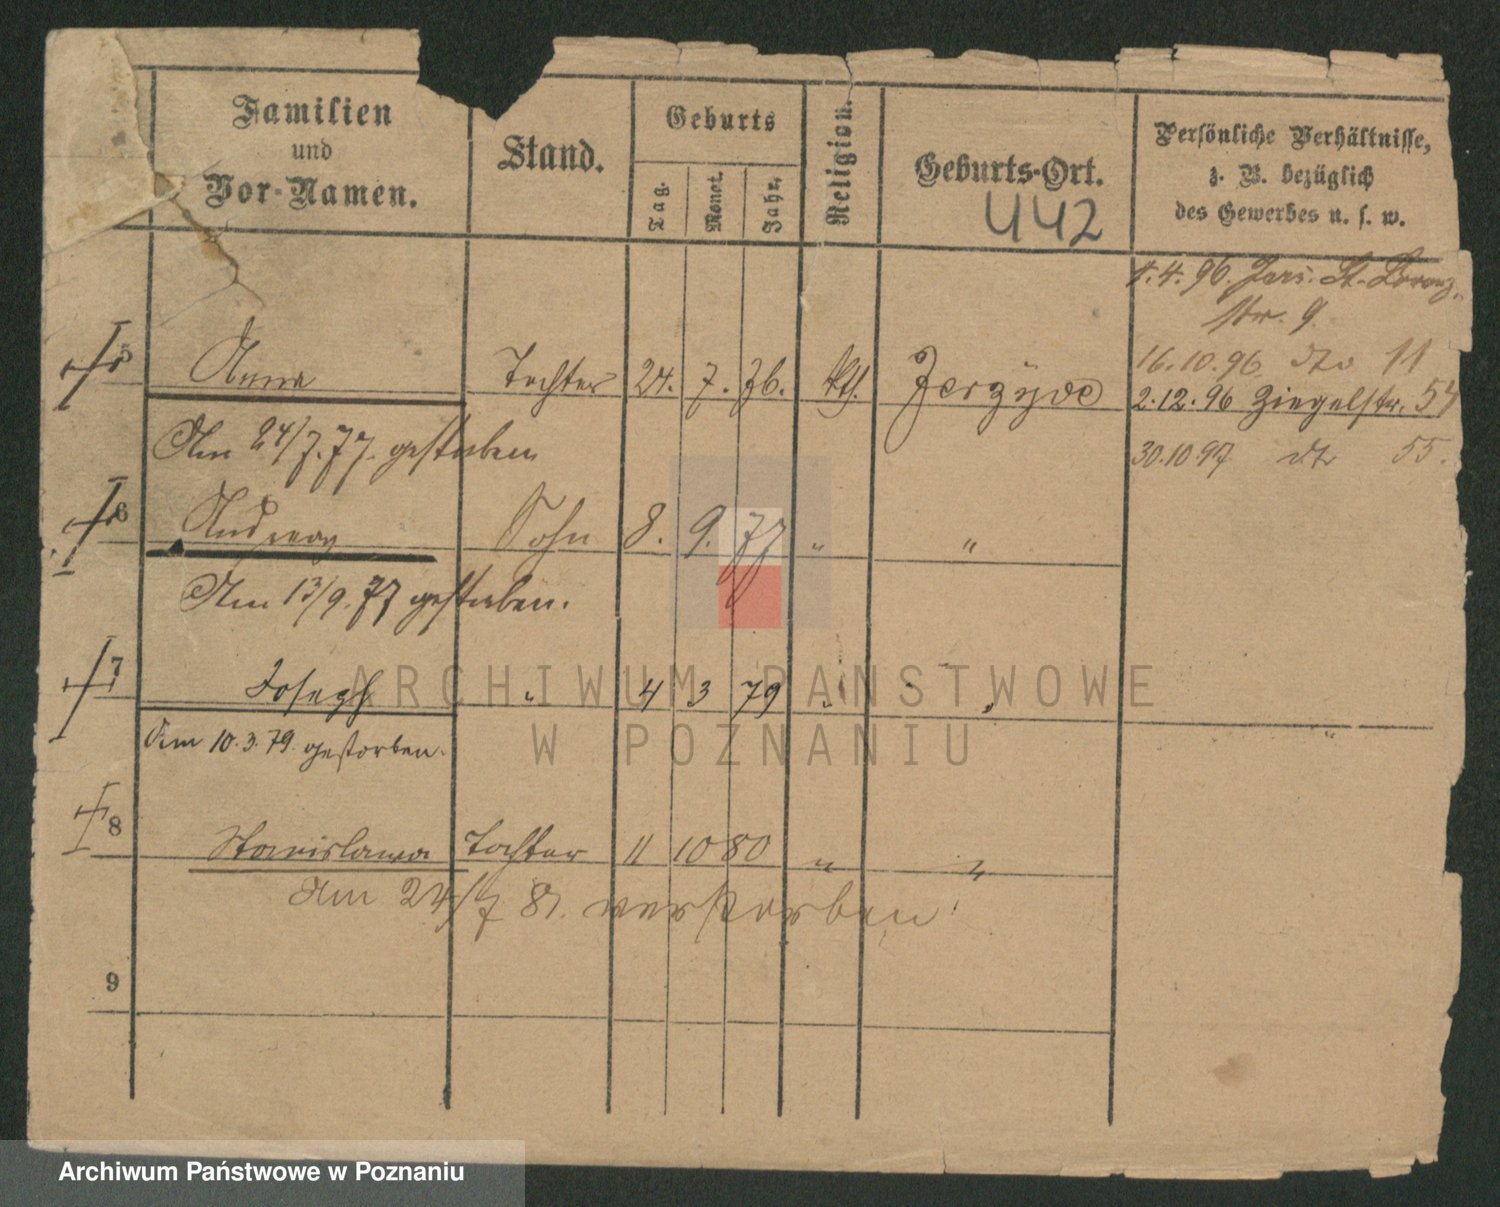 Familien
und
Vor-Namen.
Stand.
Geburts
Tag. Monat. Jahr.
Religion.
Geburts-Ort.
442
Persönliche Verhältnisse,
z. B. bezüglich
des Gewerbes u. s. w.
1.4.96. Jers. St.
str. 9
16.10.96 dto 11
5 Anna Tochter 24. 7. 76. kth. Jerzyce 2.12.96 Ziegelstr. 54
Am 24/7.77. gestorben 30.10.97 dto 55.
6 Andreas Sohn 8. 9. 77 " "
Am 13/9.77 gestorben.
7 Joseph " 4 3 79 " "
Am 10.3.79. gestorben.
8 Stanislawa Tochter 11 10 80 " "
Am 24/7 81. verstorben
9
ARCHIWUM PAŃSTWOWE
W POZNANIU
Archiwum Państwowe w Poznaniu